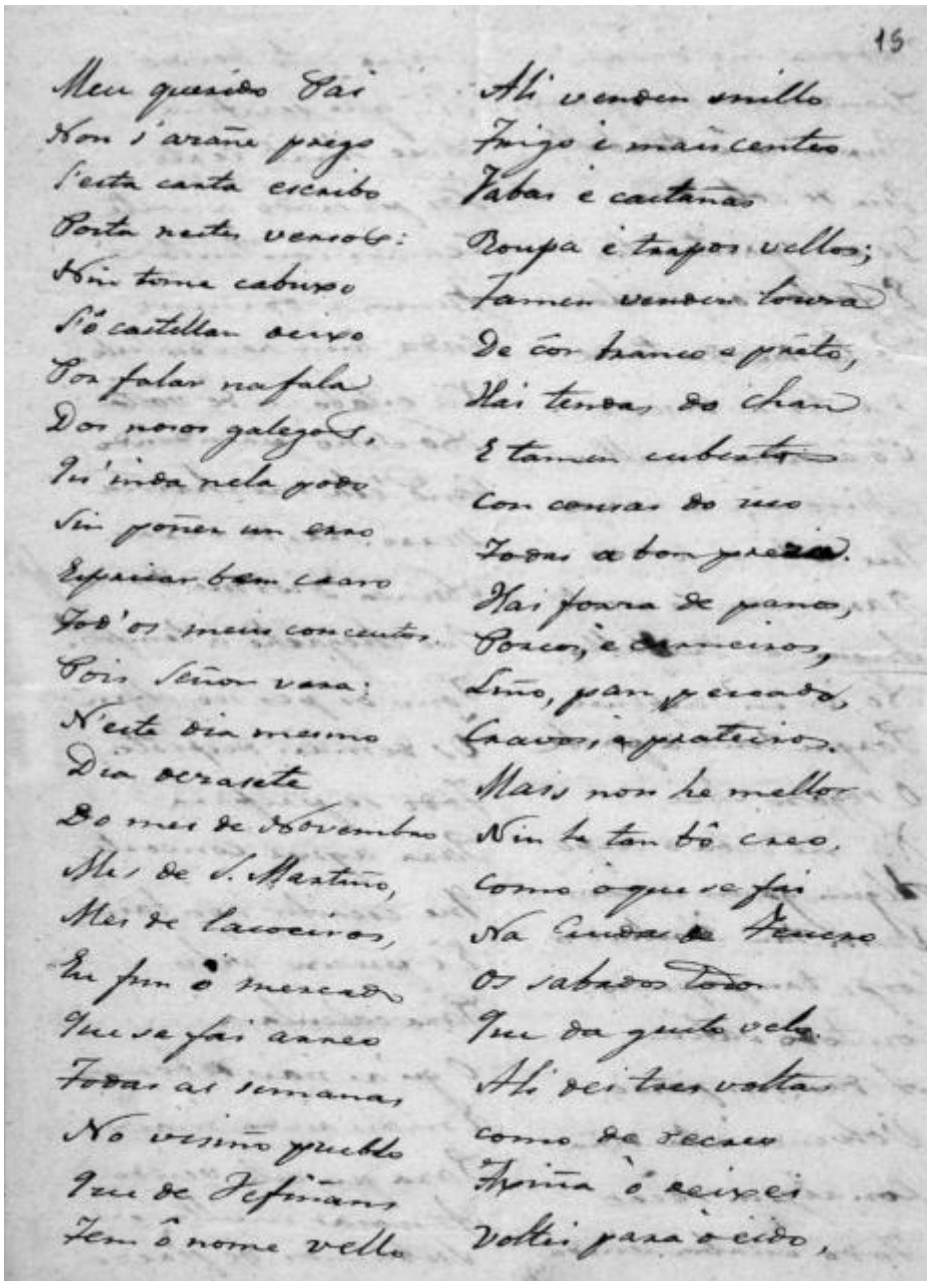 15
Meu querido Pai
Non s'arañe prego
S'esta carta escribo
Posta nestes versos:
Nin tome cabuxo
S'ô castellan deixo
Por falar na fala
Dos nosos galegos,
Qu'inda nela podo
Sin poñer un erro
Expricar bem craro
Tod'os meus conceutos.
Pois Señor vara:
N'este dia mesmo
Dia dezasete
Do mes de Novembro
Mes de S. Martiño,
Mes de
Eu fun ô mercado
Que se fai arreo
Todas as semanas
No visiño pueblo
Que de Fefiñans
Tem ô nome vello
Ali venden millo
Trigo e mais centeo
Fabas e castañas
Roupa e trapos vellos;
Tamen venden loura
De côr branco e prêto,
Hai tendas do chan
E tamen cubertos
Con cousas do uso
Todas a bon prezo.
Hai foura de panos,
Porcos, e carneiros,
Liño, pan, pescado,
Cravos, e prateiros.
Mais non he mellor
Nin he tan bô creo,
Como o que se fai
Na
Os sabados todos
Que da gusto velo.
Ali dei tres voltas
Como de recreo
Axiña ô deixei
Voltei para o eido,